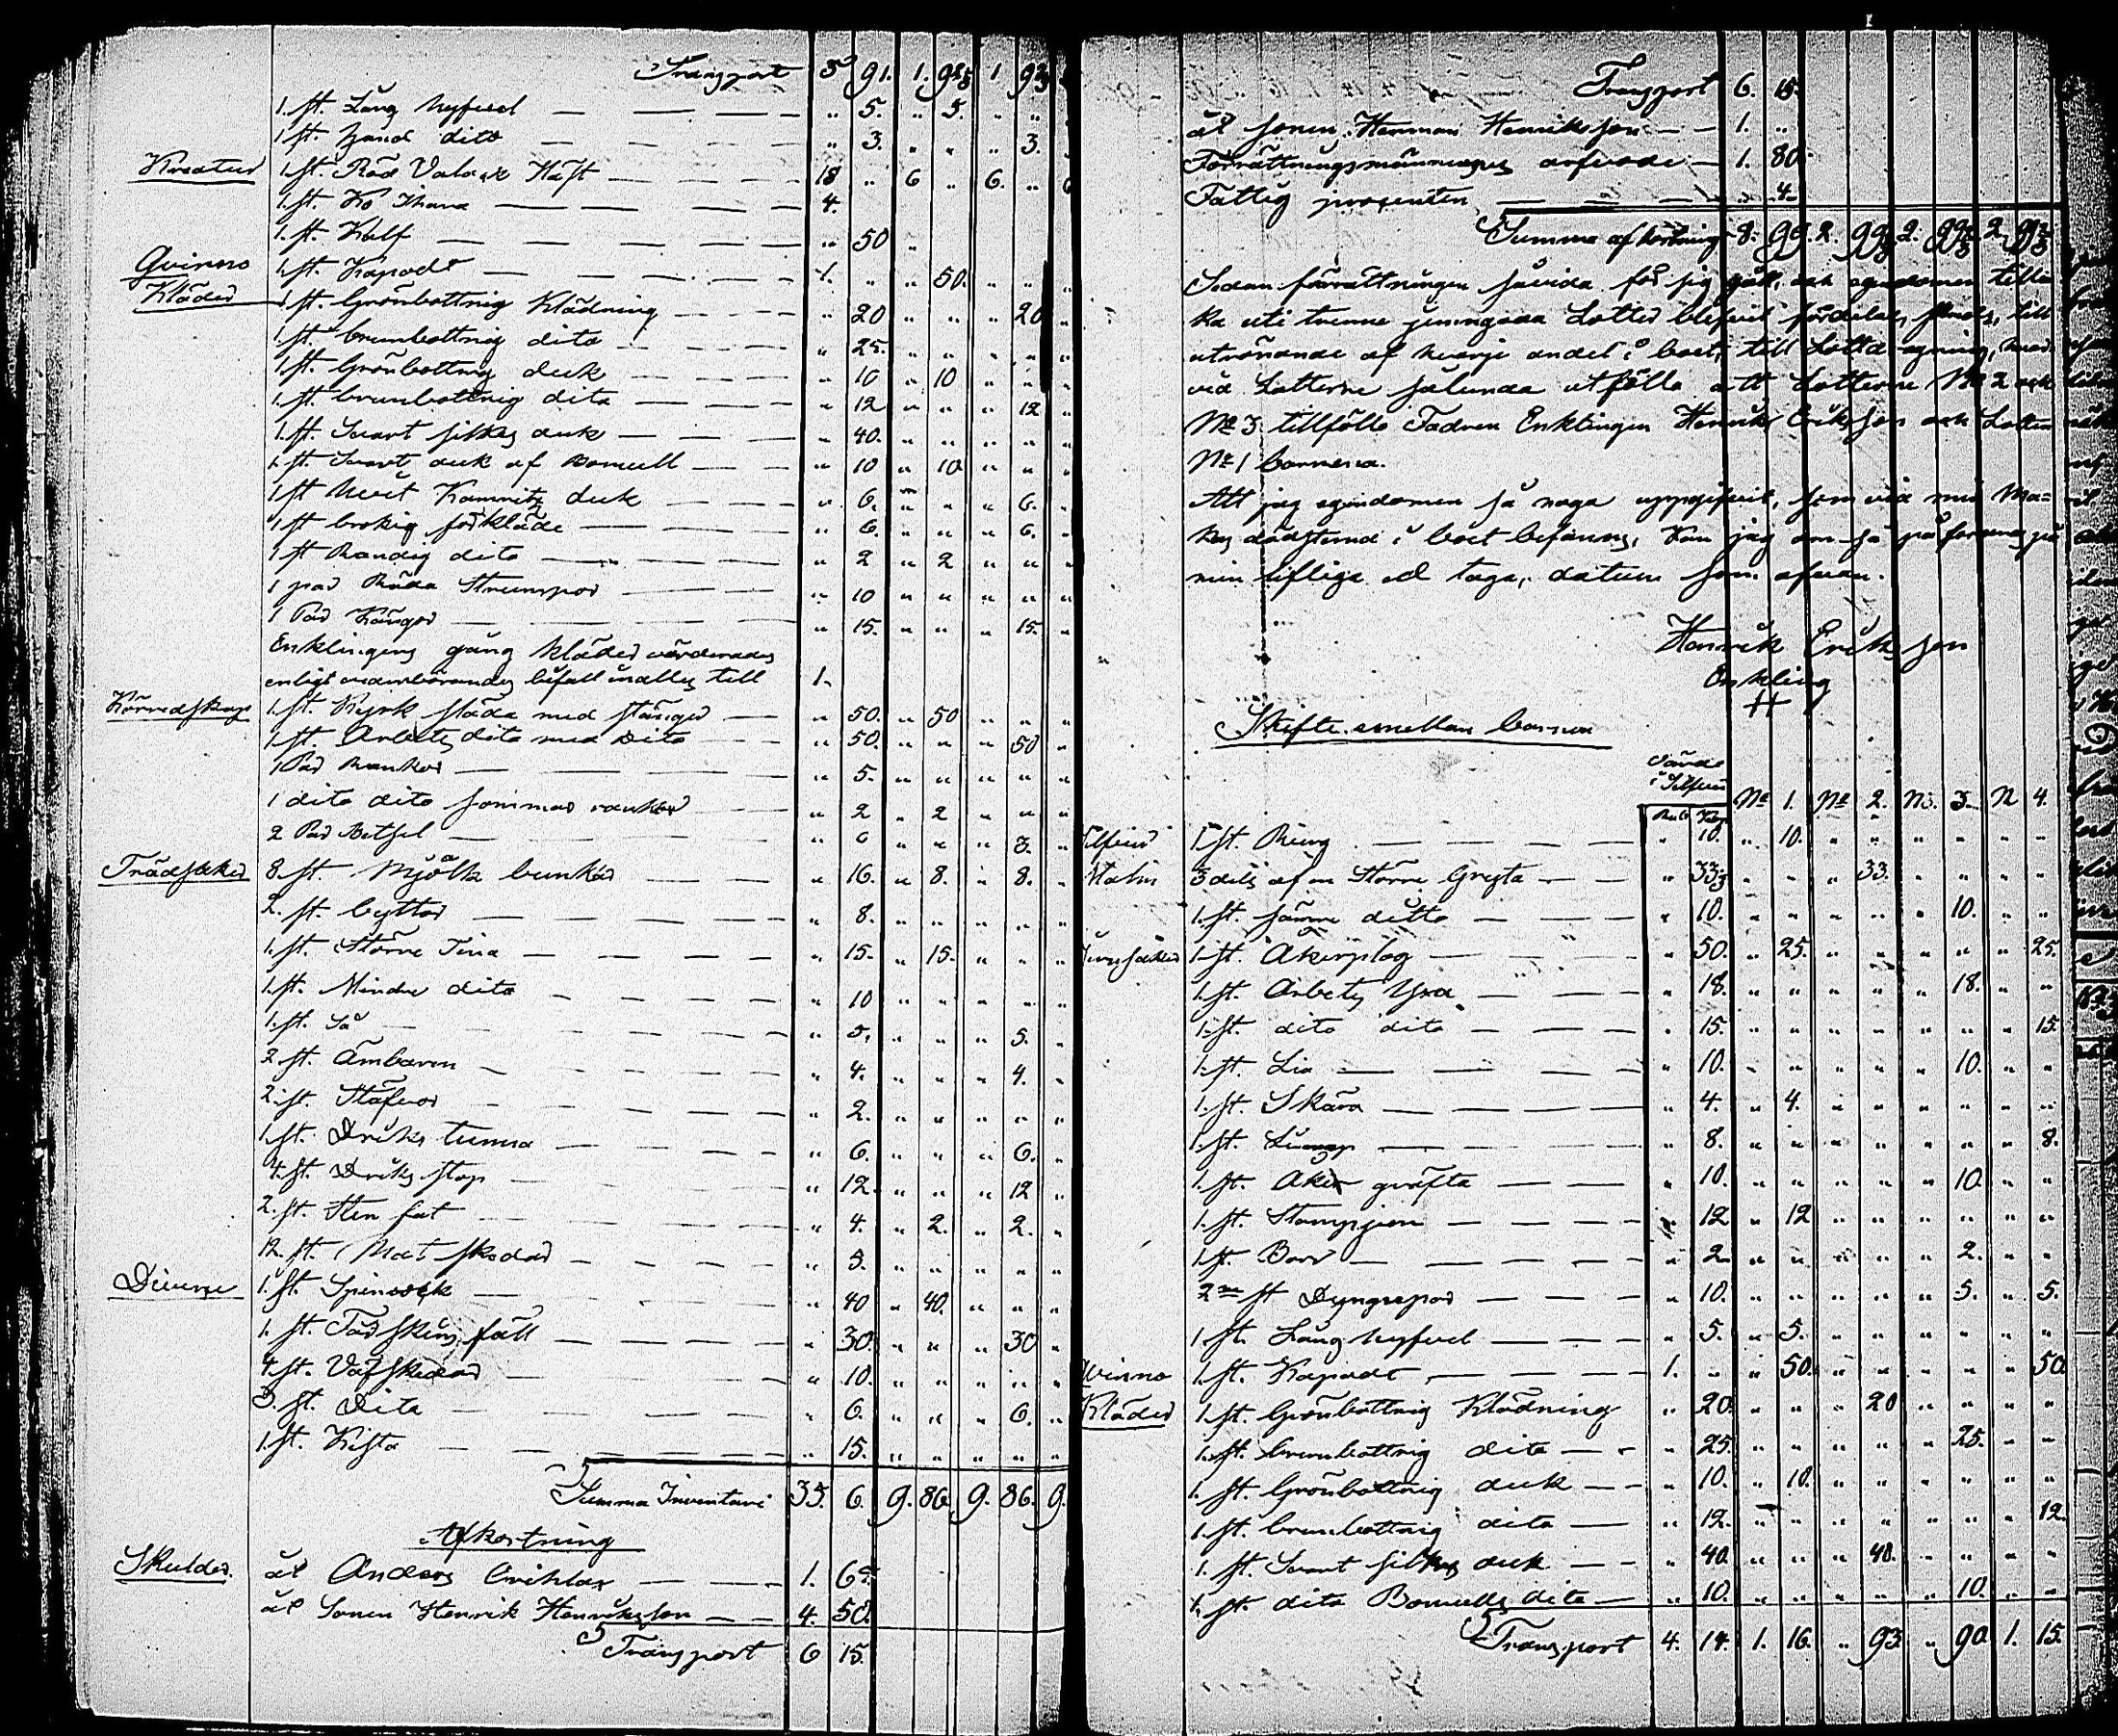 Transport 5 91. 1. 92⅓ 1 92⅓
1. st. Lång hyfvel — — — „ 5. „ 5. „ „
1 st. hand dito — — — „ 3. „ „ „ 3.
Kreatur 1 st. Röd Valack Häst — — — 18 „ 6 „ 6. „ 6
1. st. Ko — — — 4.
1. st. Kalf — — — „ 50 „
Qvinno 1 st. Kapod — — — 1. „ „ 50. „ „
Kläder 1 st. Grönbottnig Klädning — — — „ 20 „ „ „ 20 „
1 st. brunbottnig dito — — — „ 25. „ „ „ „
1 st. Grönbottnig duk — — — „ 10 „ 10 „ „
1 st. brunbottnig dito — — — „ 12 „ „ „ 12 „
1 st. Svart silkes duk — — — „ 40. „ „ „ „
1 st. Svart duk af Bomull — — „ 10 „ 10 „ „
1 st hvit duk — — — „ 6. „ „ „ 6. „
1 st brokig förkläde — — — „ 6. „ „ „ 6. „
1 st Randig dito — — — „ 2 „ 2 „ „
1 par Röda Strumpor — — — „ 10 „ „ „ „ „
1 Par Kängor — — — „ 15. „ „ „ 15. „
Enklingens gång kläder värderades
enligt vederbörandes till 1.
Körredskap 1. st. Kyrk släda med stänger — „ 50. „ 50 „ „
1. st. Arbets dito med Dito — „ 50. „ „ „ 50 „
1 Par Rankor — — — „ 5. „ „ „ „ „
1 dito dito sommar rankor — — „ 2 „ 2 „ „
2 Par Betsel — — — „ 6 „ „ „ 3. „
Trädsaker 8. st. Mjölk bunkar — — „ 16. „ 8. „ 8. „
2. st. byttor — — — „ 8. „ „ „ „
1. st. Större Tina — — — „ 15. „ 15. „ „
1. st. Mindre dito — — — „ 10 „ „ „ „
1. st. Så — — — „ 5. „ „ „ 5. „
2. st. Ämbaren — — — „ 4. „ „ „ 4. „
2. st. Stäfvor — — — „ 2. „ „ „ „
1. st. Driks tunna — — — „ 6. „ „ „ 6. „
4. st. Driks stop — — — „ 12 „ „ „ 12 „
2. st. Sten fat — — — „ 4. „ 2. „ 2. „
12. st. Mat skedar — — — „ 3. „ „ „ „
Diverse 1. st. Spinrock — — — „ 40 „ 40. „ „
1. st. Fårskins fäll — — — „ 30. „ „ „ 30 „
4. st. Väfskedar — — — „ 10. „ „ „ „
3. st. Dito — — — „ 6. „ „ „ 6. „
1. st. Kista — — — „ 15. „ „ „ „
Summa Inventarii 35. 6. 9. 86. 9. 86. 9.
Afkortning
Skulder. åt Anders — — 1. 65
åt Sonen Henrik Henriksson — — 4. 50.
Transport 6 15.
Transport 6. 15.
åt sonen Herman Henriksson — — 1. „
Förrättningsmännernes arfvode — 1. 80.
Fattig procenten — — — „ 4.
Summa afkortning 8. 99. 2. 99⅔ 2. 99⅔ 2. 99⅔
Sedan förrättningen såvida för sig gått, och egendomen
uti trenne jemngoda Lotter blifvit fördelas, till
utrönande af hvarje andel i boet, till
vid Lotterne sålunda utfölle att Lotterne No 2 och
No 3 tillfölle Fadren Enklingen Henrik Eriksson och Lotten
No 1 barnena.
Att jag egendomen så noga uppgifvit, som vid min Ma=
kas dödstimma i boet befanns, kan jag om så påfordras på
min lifliga ed taga, datum som ofvan.
Henrik Eriksson
Enkling
Skifte emellan barnen
Värde
i Silfver
Rub Kop No 1. No 2. No. 3. N 4.
Silfver 1. st. Ring — — — „ 10. „ 10. „ „ „ „ „ „
Malm 3 dels af en Större Gryta — — „ 33⅓ „ „ „ 33. „ „ „ „
1. st. sämre ditto — — — „ 10. „ „ „ „ „ 10. „ „
Jernsaker 1. st. Åkerplog — — — „ 50. „ 25. „ „ „ „ „ 25.
1. st. Arbets Yxa — — — „ 18. „ „ „ „ „ 18. „ „
1. st. dito dito — — — „ 15. „ „ „ „ „ „ „ 15.
1. st. Lia — — — „ 10. „ „ „ „ „ 10. „ „
1. st. Skära — — — „ 4. „ 4. „ „ „ „ „ „
1. st. — — — „ 8. „ „ „ „ „ „ „ 8.
1. st. Åker gräfta — — — „ 10. „ „ „ „ „ 10. „ „
1. st. Stampjern — — — „ 12 „ 12 „ „ „ „ „ „
1 st. Borr — — — „ 2 „ „ „ „ „ 2. „ „
2ne st — — — „ 10. „ „ „ „ „ 5. „ 5.
1 st. Lång hyfvel — — — „ 5. „ 5. „ „ „ „ „ „
Qvinno 1. st. Kapod — — — 1. „ „ 50. „ „ „ „ „ 50.
Kläder 1. st. Grönbottnig Klädning „ 20. „ „ „ 20 „ „ „ „
1. st. brunbottnig dito — — „ 25 „ „ „ „ „ 25. „ „
1. st. Grönbottnig duk — — „ 10. „ 10. „ „ „ „ „ „
1. st. brunbottnig dito — „ 12. „ „ „ „ „ „ „ 12.
1. st. Svart silkes duk — — „ 40 „ „ „ 40. „ „ „ „
1. st. dito Bomulls dito — „ 10. „ „ „ „ „ 10. „ „
Transport 4. 14. 1. 16. „ 93. „ 90. 1. 15.